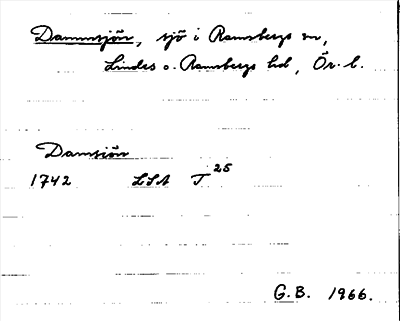 Dammsjön, sjö i Ramsbergs sn,
Lindes o. Ramsbergs hd, Ör. l.
Damsiön
1742 LSA T 25
G.B. 1966.